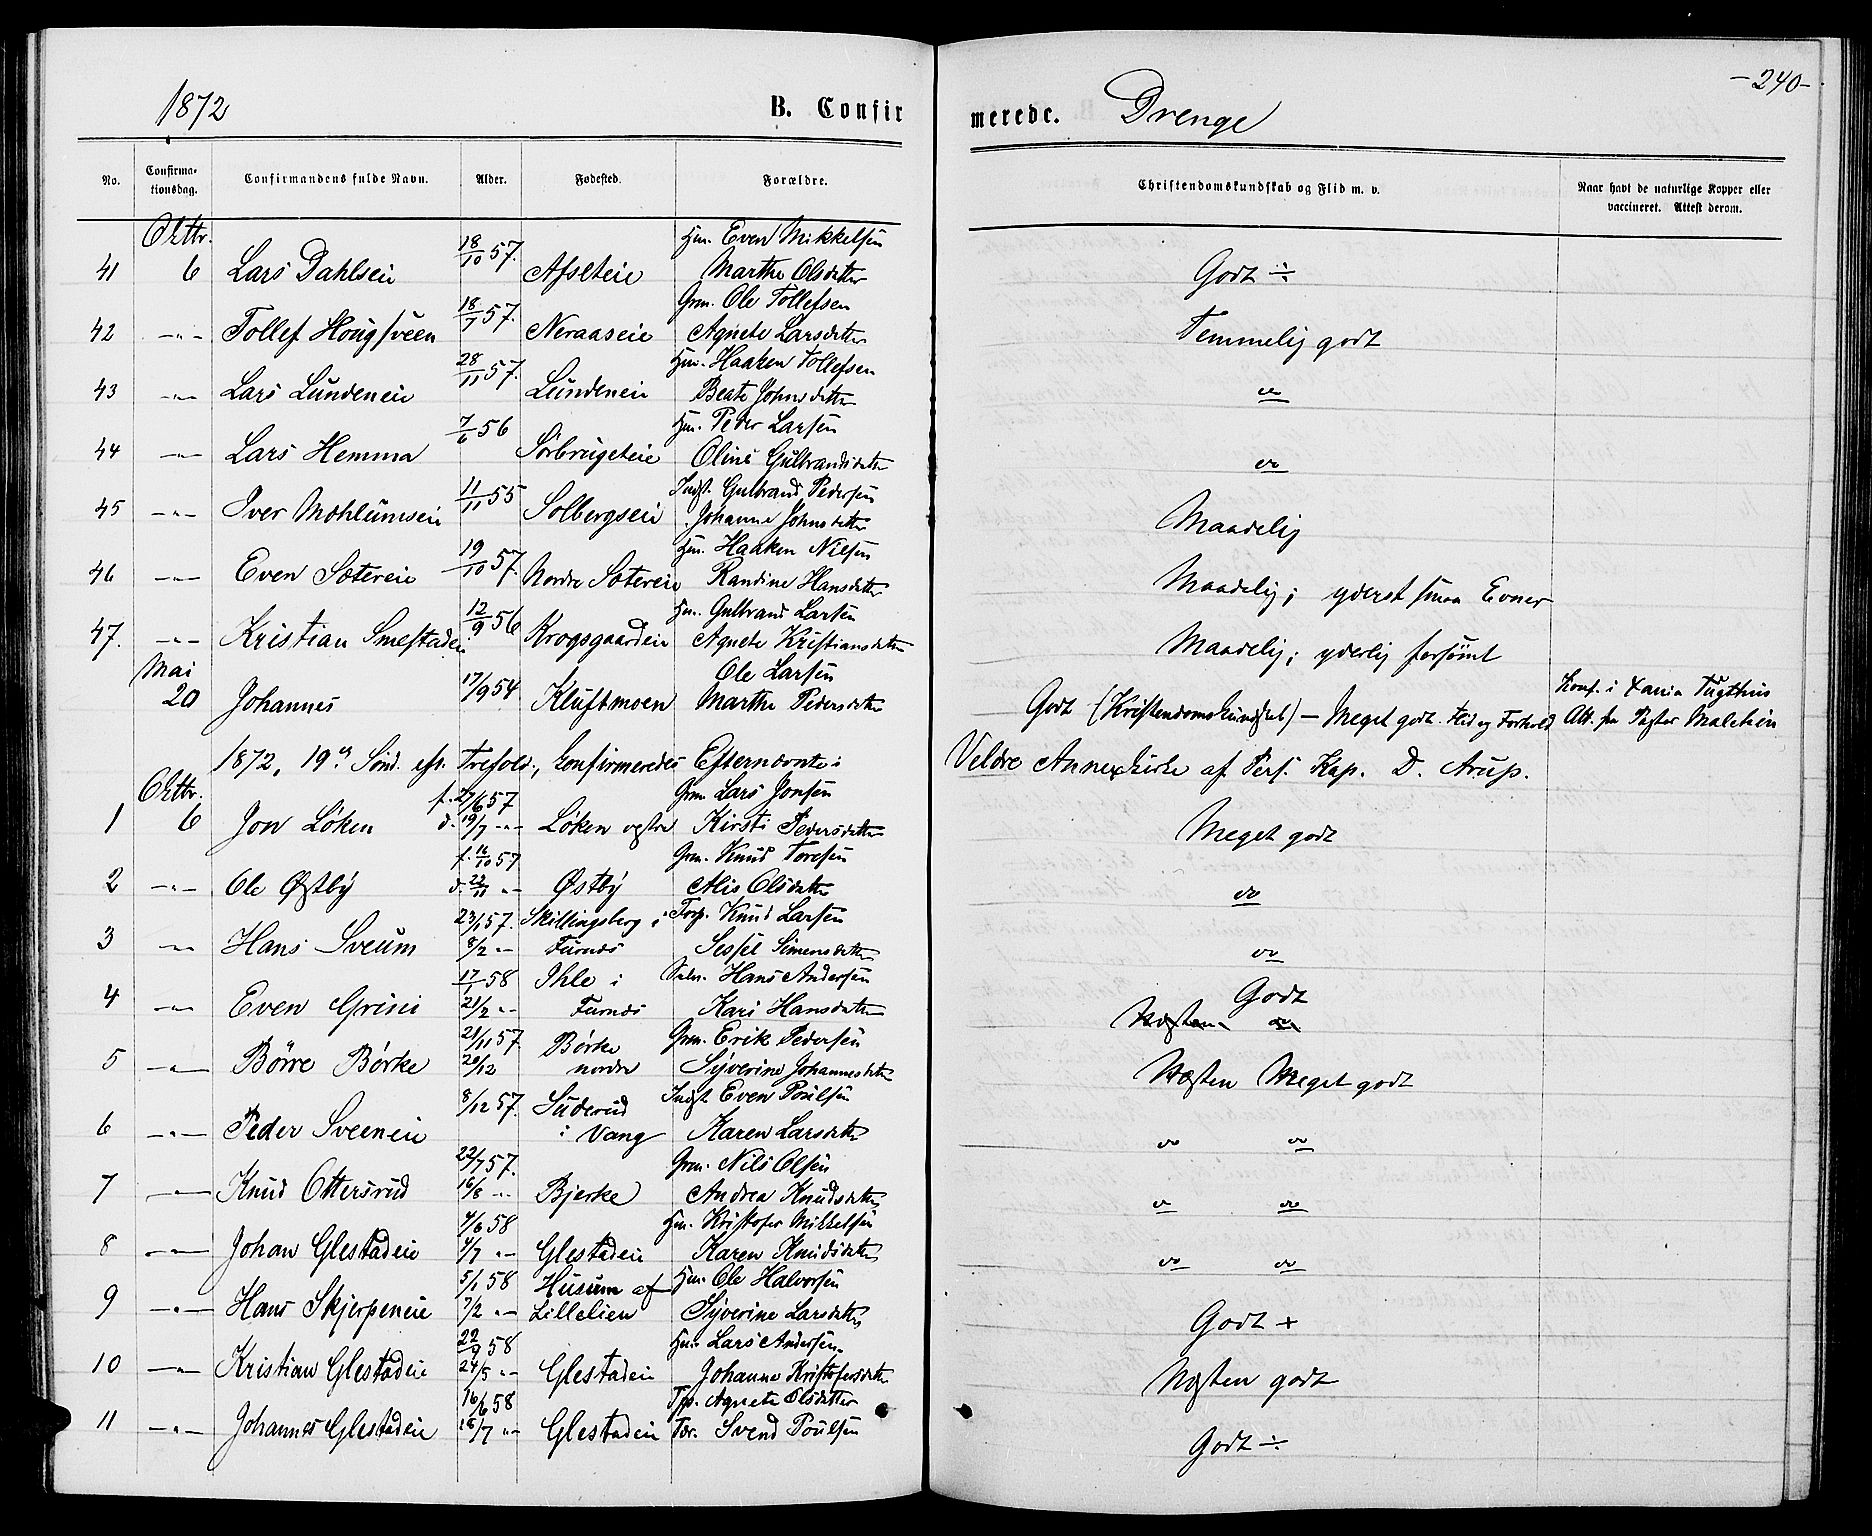 1872 B. Confirmerede. Drenge -240-
No. Confirmationsdag. Confirmandens fulde Navn. Alder. Fødested. Forældre. Christendomskundskab og Flid m. v. Naar havt de naturlige Kopper eller vaccineret. Attest derom.
Oktbr. 18/10 57. Hm. Even Mikkelsen
41 6 Lars Dahlseie Afseteie Marthe Olsdatter Godt ÷
18/7 57. Grm. Ole Tollefsen
42 -"- Tollef Hougsveen Neraaseie Agnete Larsdatter Temmelig godt
28/11 57. Hm. Haaken Tollefsen
43 -"- Lars Lundeneie Lundeneie Beate Johnsdatter do
7/6 56 Hm. Peder Larsen
44 -"- Lars Hemma Sørbrugeteie Oline Gulbrandsdatter do
11/11 55 Indst. Gulbrand Pedersen
45 -"- Iver Mohlumseie Solbergseie Johanne Johnsdatter Maadelig
19/10 57. Hm. Haaken Nilsen
46 -"- Even Sætereie Nordre Sætereie Randine Hansdatter Maadelig; yderst smaa Evner
12/9 56 Hm. Gulbrand Larsen
47. -"- Kristian Smestadeie Krogsgaardeie Agnete Kristiansdatter Maadelig; yderlig forsömt
Mai Ole Larsen Konf. i Xania Tugthus
20 Johannes 17/9 54 Kluftmoen Marthe Pedersdatter Godt (Kristendomskundskab) - Meget godt Flid og Forhold Att. fra Pastor Malchin
1872, 19de Sönd. eft. Trefold., Confirmeredes Efternævnte i Veldre Annexkirke af Pers. Kap. D. Arup.
Oktbr. f. 27/6 57 Grm Lars Jonsen
1 6 Jon Løken d. 19/7 -"- Løken østre Kirsti Pedersdatter Meget godt
f. 16/10 57 Grm. Knud Toresen
2 -"- Ole Østby d. 22/11 "- Østby Alis Olsdatter do
23/1 57. Skillingsberg i Torp. Knud Larsen
3 -"- Hans Sveum 8/2 "- Furnæs Sessel Simensdatter do
17/1 58 Ihle i Selv. Hans Andersen Godt
4 -"- Even Grini 21/2 "- Furnæs Kari Hansdatter Næsten do
21/11 57. Børke Grm. Erik Pedersen
5 -"- Börre Børke 20/12 nordre Syverine Johannesdatter Næsten Meget godt
8/12 57. Suderud Indst Even Poulsen
6 -"- Peder Sveeneie i Vang Karen Larsdatter do do
22/7 57. Grm. Nils Olsen
7 -"- Knud Ottersrud 16/8 "- Bjerke Andrea Knudsdatter do do
4/6 58 Hm. Kristofer Mikkelsen
8 -"- Johan Glestadeie 4/7 "- Glestadeie Karen Knudsdatter do do
5/1 58 Husum af Hm. Ole Halvorsen
9 -"- Hans Skjerpeneie 7/2 "- Lillelien Syverine Larsdatter Godt +
22/9 58 Hm. Lars Andersen
10 -"- Kristian Glestadeie 24/5 "- Glestadeie Johanne Kristofersdatter Næsten godt
16/6 58 Tjp. Agnete Olsdatter
11 -"- Johannes Glestadeie 18/7 "- Glestadeie Tor. Svend Poulsen Godt ÷